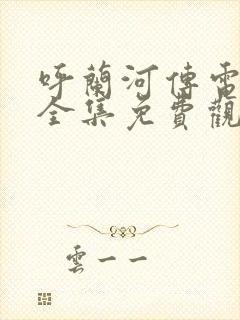 呼蘭河傳電
全集免費觀
雲一一